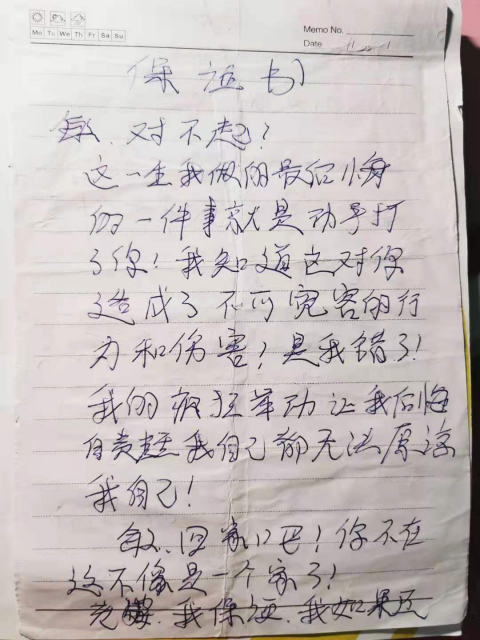 Mo Tu We Th Fr Sa Su
Memo No.
Date
保证书
敏、对不起!
这一生我做的最后悔
的一件事就是动手打
了你!我知道这对你
造成了不可宽容的行
为和伤害!是我错了!
我的疯狂举动让我后悔
自责 我自己都无法原谅
我自己!
敏、回家吧!你不在
这不像是一个家了!
我保证、我如果还